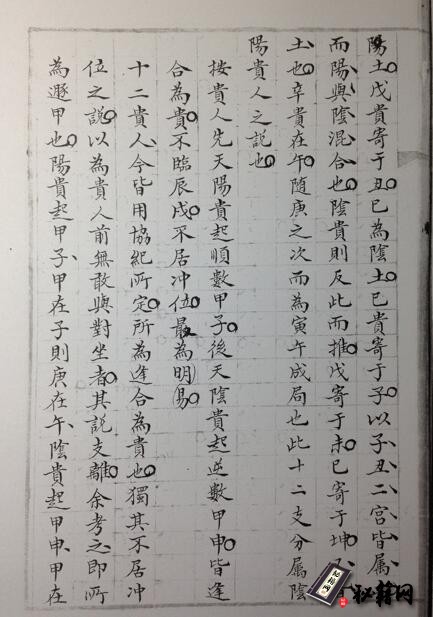 陽土戊貴寄于丑己為陰土己貴寄于子以子丑二宮皆屬
而陽與陰混合也陰貴則反此而推戊寄于未己寄于坤
土也辛貴在午隨庚之次而為寅午成局也此十二支分属陰
陽貴人之説也
按貴人先天陽貴起順數甲子後天陰貴起逆數甲申皆逢
合為貴不臨辰戌不居冲位最為明易
十二貴人今皆用協紀所定所為逢合為貴也獨其不居冲
位之説以為貴人前無敢與對坐者其説支離余考之即所
為遯甲也陽貴起甲子甲在子則庚在午陰貴起甲申甲在
秘籍网
秘籍网